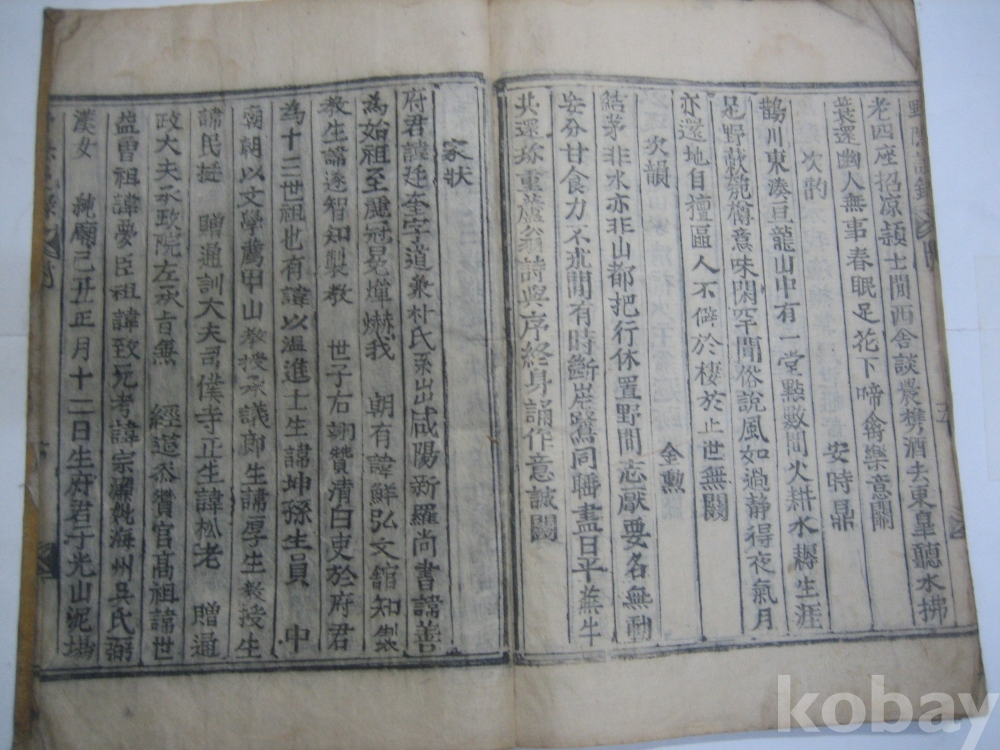 老四座招凉顙士閒西舍談農樵酒去東皐聽水拂
蓑還幽人無事春眠足花下啼禽樂意關
次韵 安時鼎
鵲川東湊亘龍山中有一堂點數間火耕水耨生涯
足野蔌範樽意味閑罕聞俗說風如過靜得夜氣月
亦還地自擅區人不僻於棲於止世無關
次韻 金勲
結茅非水亦非山都把行休置野間忘厭要名無動
安分甘食力不求閒有時斷崖鷺同睡盡日平蕪牛
共還珎重蘆翁詩與序終身誦作意誠關
家狀
府君諱廷奎字道兼朴氏系出咸陽新羅尚書諱善
為始祖至麗冠冕燀爀我 朝有諱鮮弘文舘知製
教生諱遂智知製教 世子右翊贊清白吏於府君
為十二世祖也有諱以溫進士生諱坤孫生員 中
廟朝以文學薦甲山教授承議郎生諱厚生教授生
諱民挺 贈通訓大夫司僕寺正生諱松老 贈通
政大夫承政院左承旨無 經道叅贊官高祖諱世
益曽祖諱夢臣祖諱致元考諱宗潔妣海州吳氏弼
漢女 純廟己丑正月十二日生府君于光山泥場
kobay